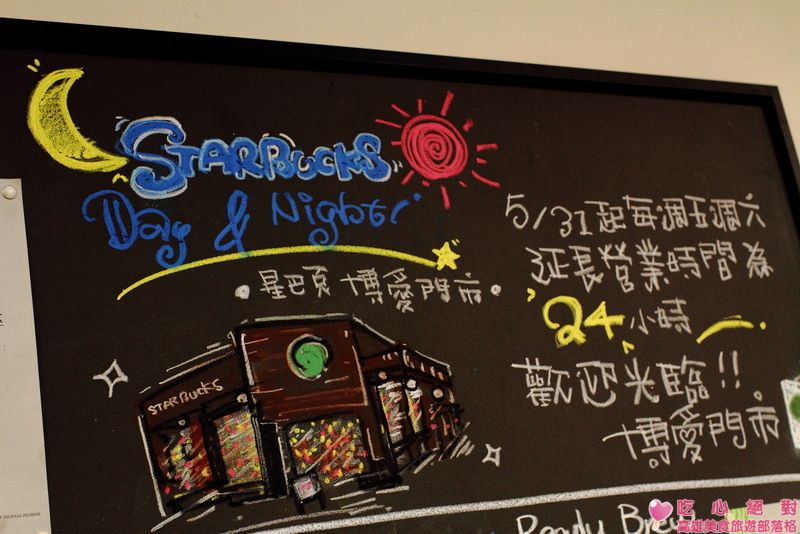 STARBUCKS
Day & Night!
星巴克 博愛門市
STARBUCKS
5/31起每週五週六
延長營業時間為
24小時
歡迎光臨!!
博愛門市
Ready Brew
吃心絕對
高雄美食旅遊部落格